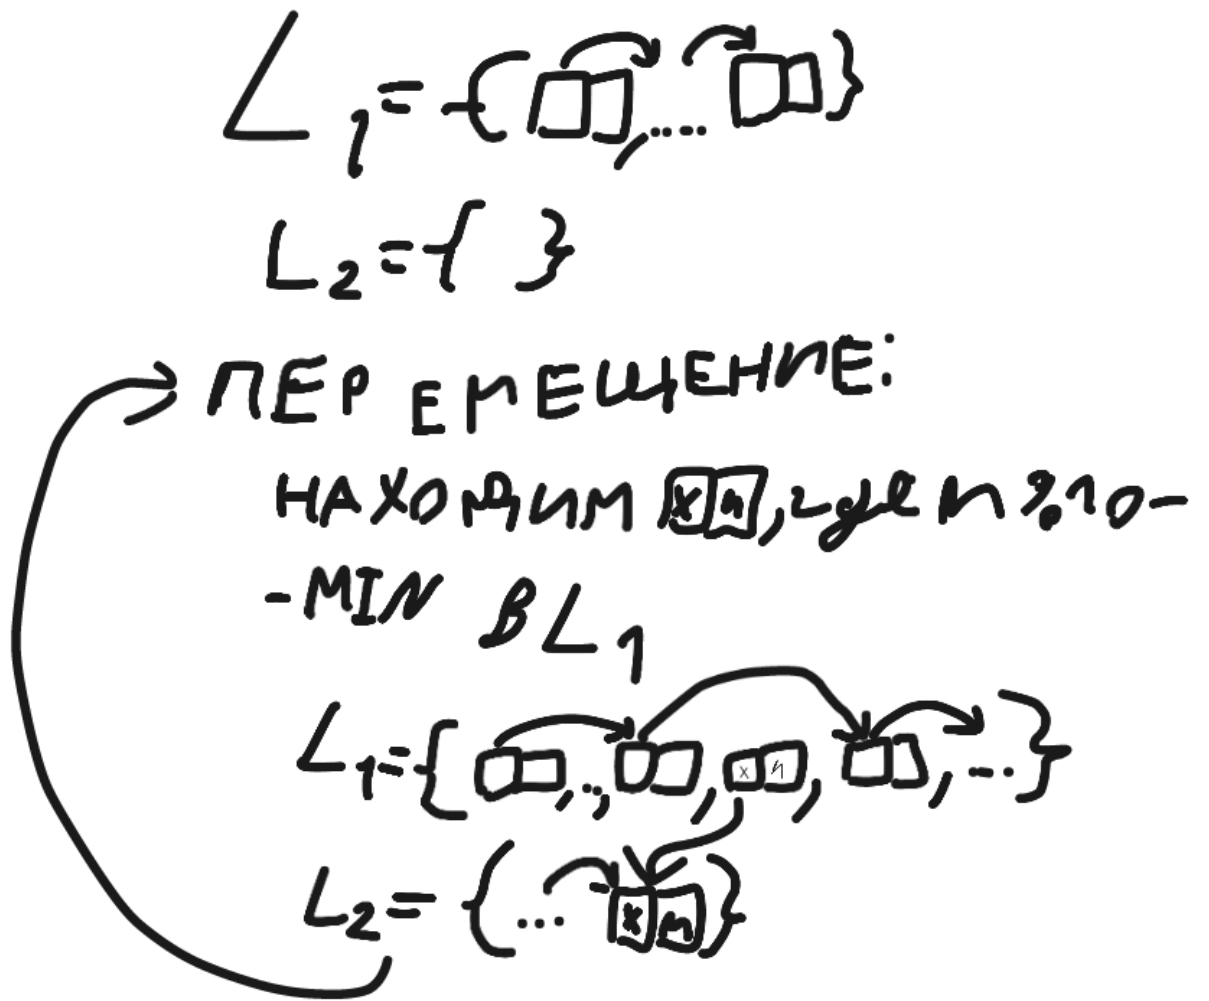 L₁ = { , .... }
L₂ = { }
ПЕРЕМЕЩЕНИЕ:
НАХОДИМ x n, где n % 10 -
- MIN В L₁
L₁ = { , .., , x n , , ... }
L₂ = { ... x n }